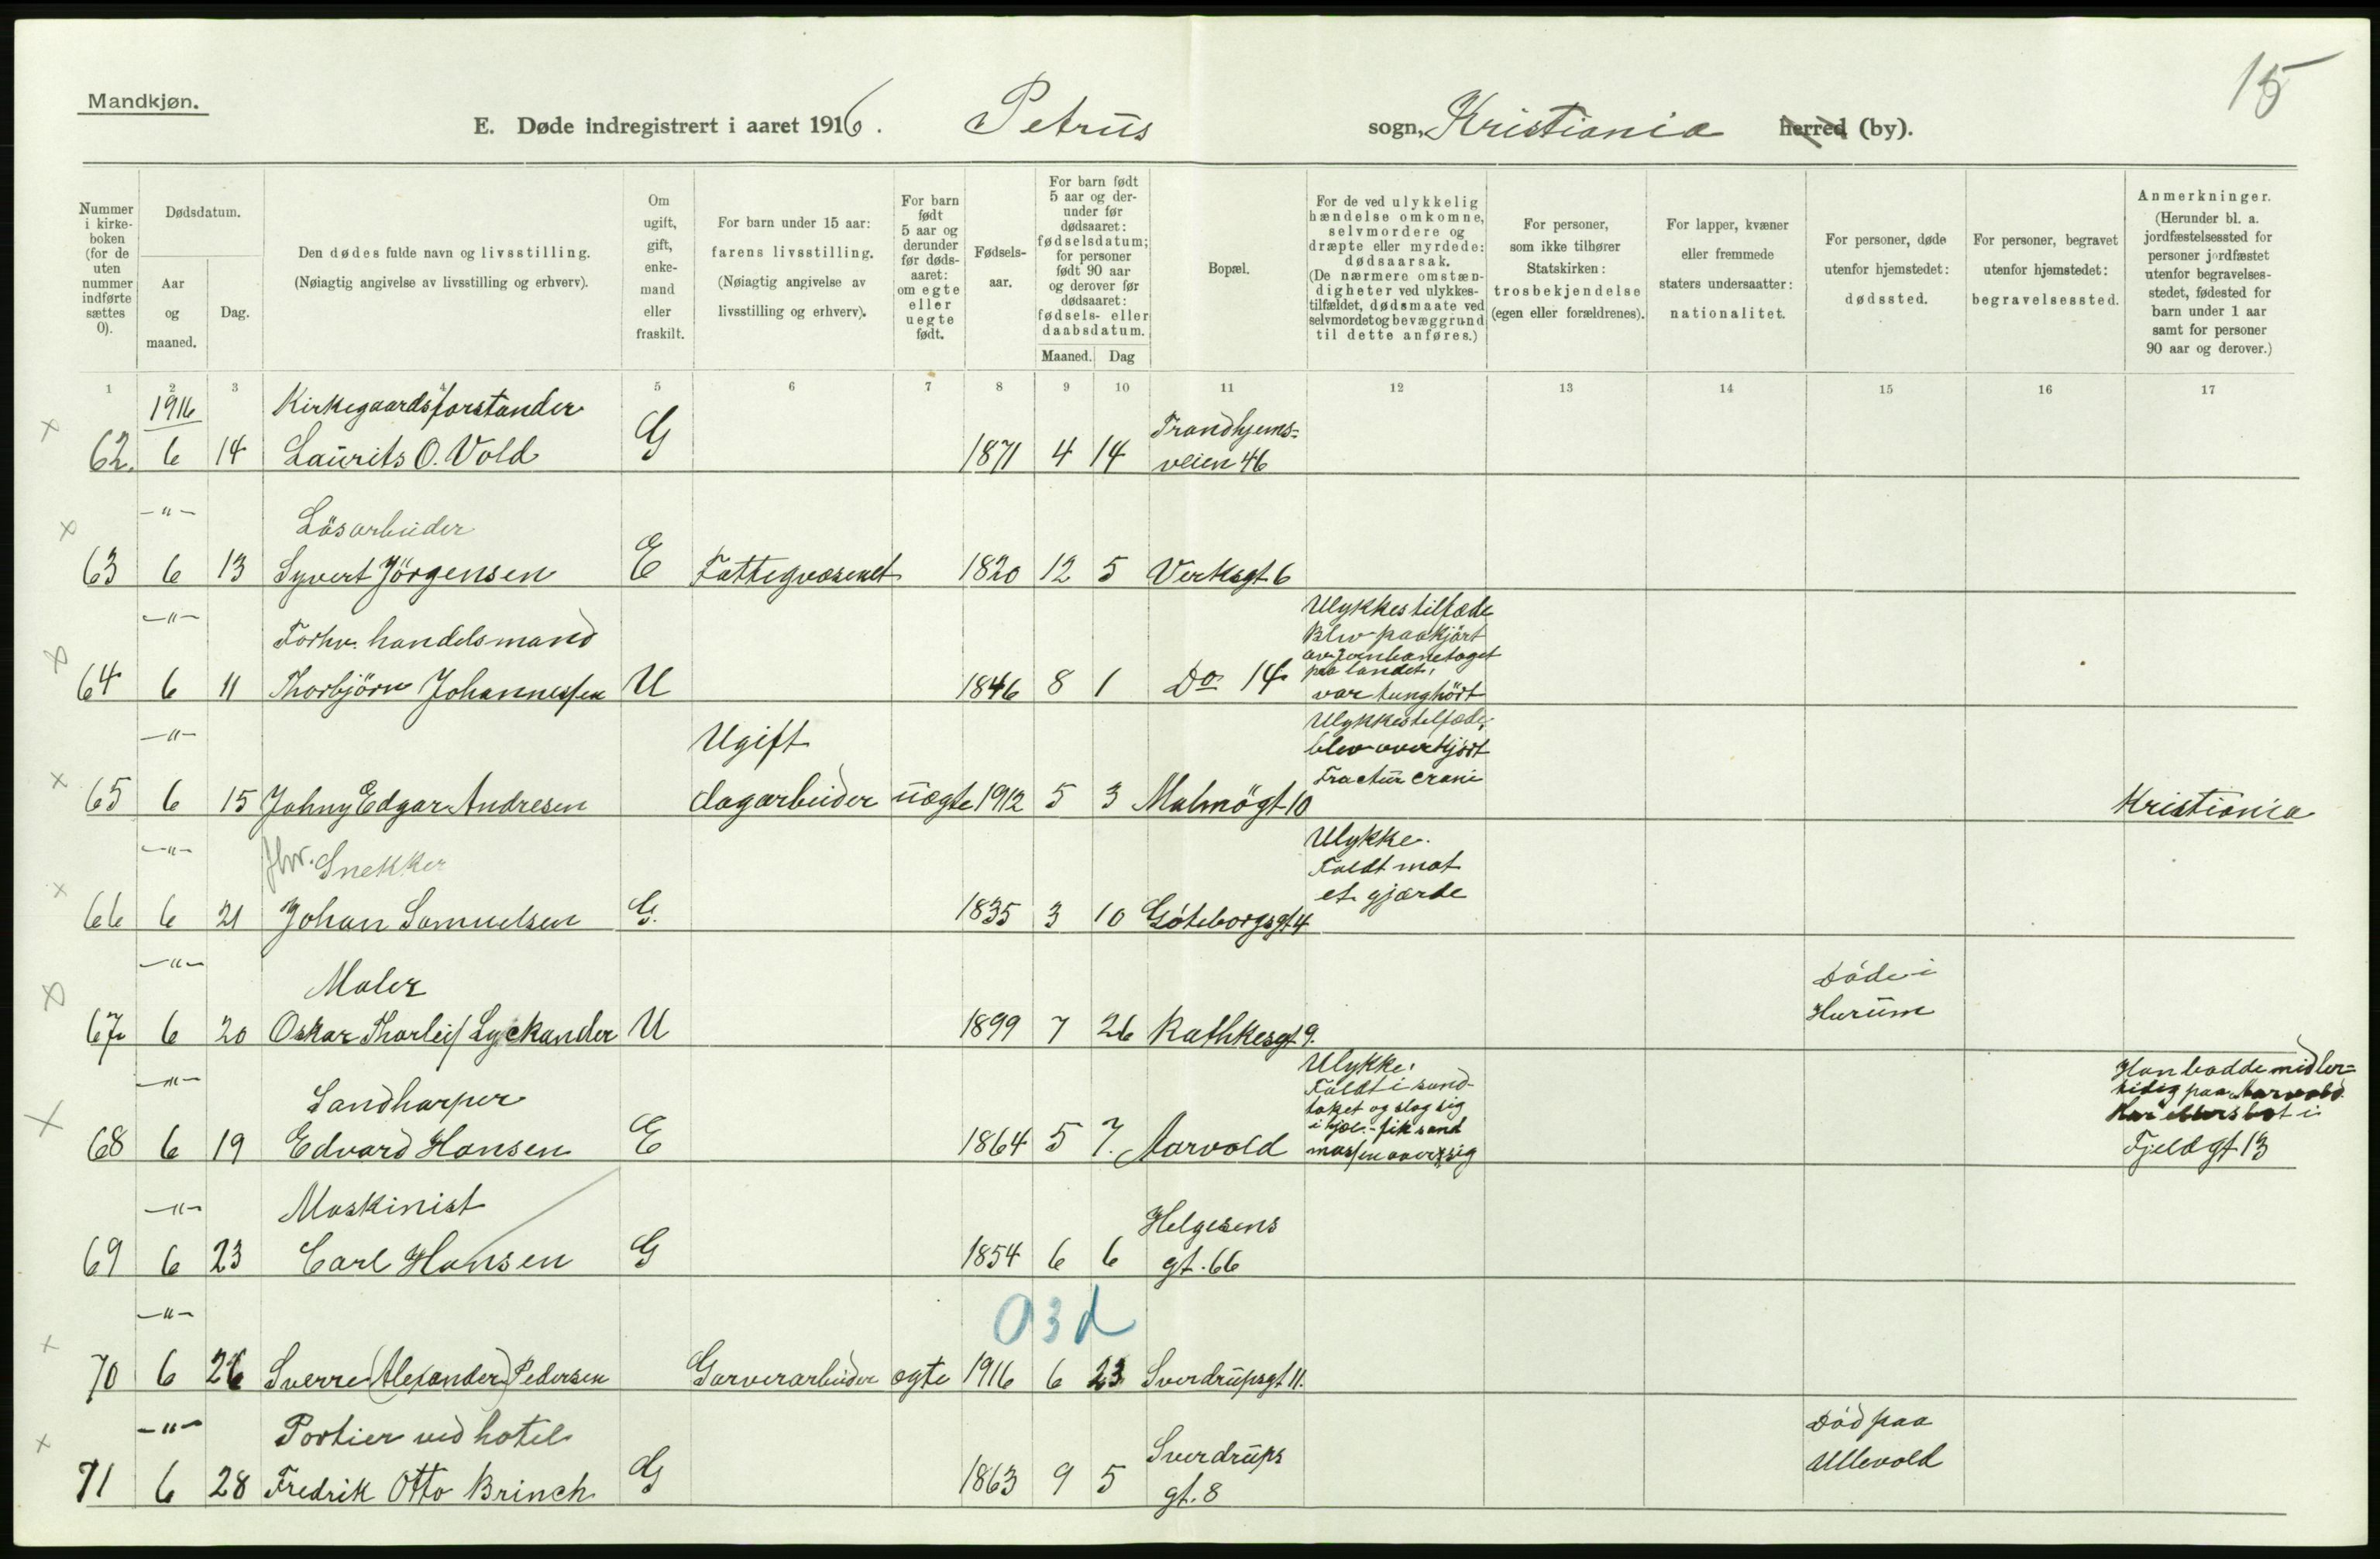 15
Mandkjøn.
E. Døde indregistrert i aaret 1916. Petrus sogn, Kristiania herred (by).
Nummer i kirke-boken (for de uten nummer indførte sættes 0).
Dødsdatum.
Aar og maaned.
Dag.
Den dødes fulde navn og livsstilling.
(Nøiagtig angivelse av livsstilling og erhverv).
Om ugift, gift, enke-mand eller fraskilt.
For barn under 15 aar: farens livsstilling.
(Nøiagtig angivelse av livsstilling og erhverv).
For barn født 5 aar og derunder før døds-aaret: om egte eller uegte født.
Fødsels-aar.
For barn født 5 aar og der-under før dødsaaret: fødselsdatum; for personer født 90 aar og derover før dødsaaret: fødsels- eller daabsdatum.
Maaned. Dag
Bopæl.
For de ved ulykkelig hændelse omkomne, selvmordere og dræpte eller myrdede: dødsaarsak.
(De nærmere omstæn-digheter ved ulykkes-tilfældet, dødsmaate ved selvmordet og bevæggrund til dette anføres.)
For personer, som ikke tilhører Statskirken: trosbekjendelse (egen eller forældrenes).
For lapper, kvæner eller fremmede staters undersaatter: nationalitet.
For personer, døde utenfor hjemstedet: dødssted.
For personer, begravet utenfor hjemstedet: begravelsessted.
Anmerkninger.
(Herunder bl. a. jordfæstelsessted for personer jordfæstet utenfor begravelses-stedet, fødested for barn under 1 aar samt for personer 90 aar og derover.)
1 2 3 5 6 7 8 9 10 11 12 13 14 15 16 17
1916 Kirkegaardsforstander Trondhjems=
62. 6 14 Laurits O. Vold G 1871 4 14 veien 46
-"- Løsarbeider
63 6 13 Syvert Jörgensen E Fattigvæsenet 1820 12 5 Verksgt 6
-"- Forhv. handelsmand Ulykkestilfæde
Blev paakjørt
av jernbanetoget
paa landet,
64 6 11 Thorbjörn Johannessen U 1846 8 1 Do 14 var tunghørt
-"- Ugift Ulykkestilfæde,
blev overkjørt
Fractur crani
65 6 15 Johny Edgar Andresen dagarbeider uægte 1912 5 3 Malmögt 10 Kristiania
-"- fhv. Snekker Ulykke.
Faldt mot
et gjærde
66 6 21 Johan Samuelsen G. 1835 3 10 Göteborgsgt 4
-"- Maler Döde i
Hurum
67 6 20 Oskar Thorleif Lyckander U 1899 7 26 Rathkesgt 9.
-"- Sandharper Ulykke.
Faldt i sand-
taket og slog sig
i hjel - fik sand
68 6 19 Edvard Hansen E 1864 5 7. Aarvold massen over sig
Han bodde midler=
tidig paa Aarvold
i
Fjeldgt 13
-"- Maskinist Helgesens
69 6 23 Carl Hansen G 1854 6 6 gt. 66
-"- 03d
70 6 26 Sverre (Alexander) Pedersen Garverarbeider ægte 1916 6 23 Sverdrupsgt 11.
-"- Portier ved hotel Sverdrups Död paa
71 6 28 Fredrik Otto Brinch G 1863 9 5 gt. 8 Ullevold